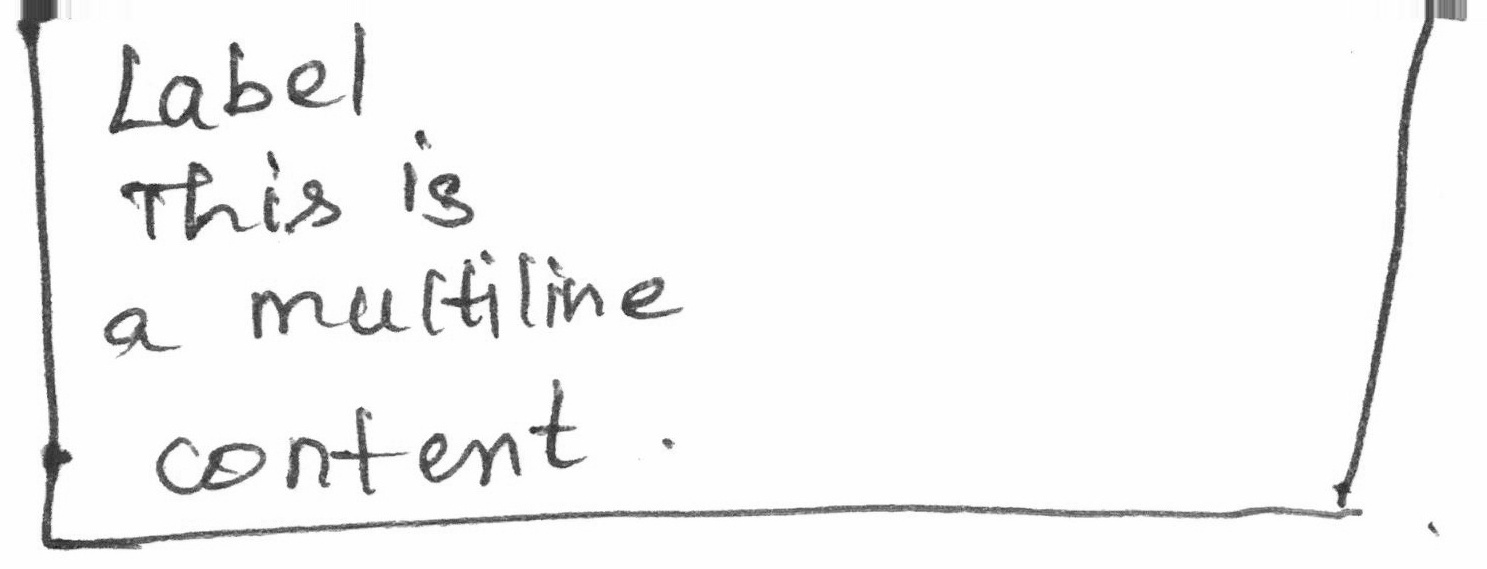 Label
This is
a multiline
content.